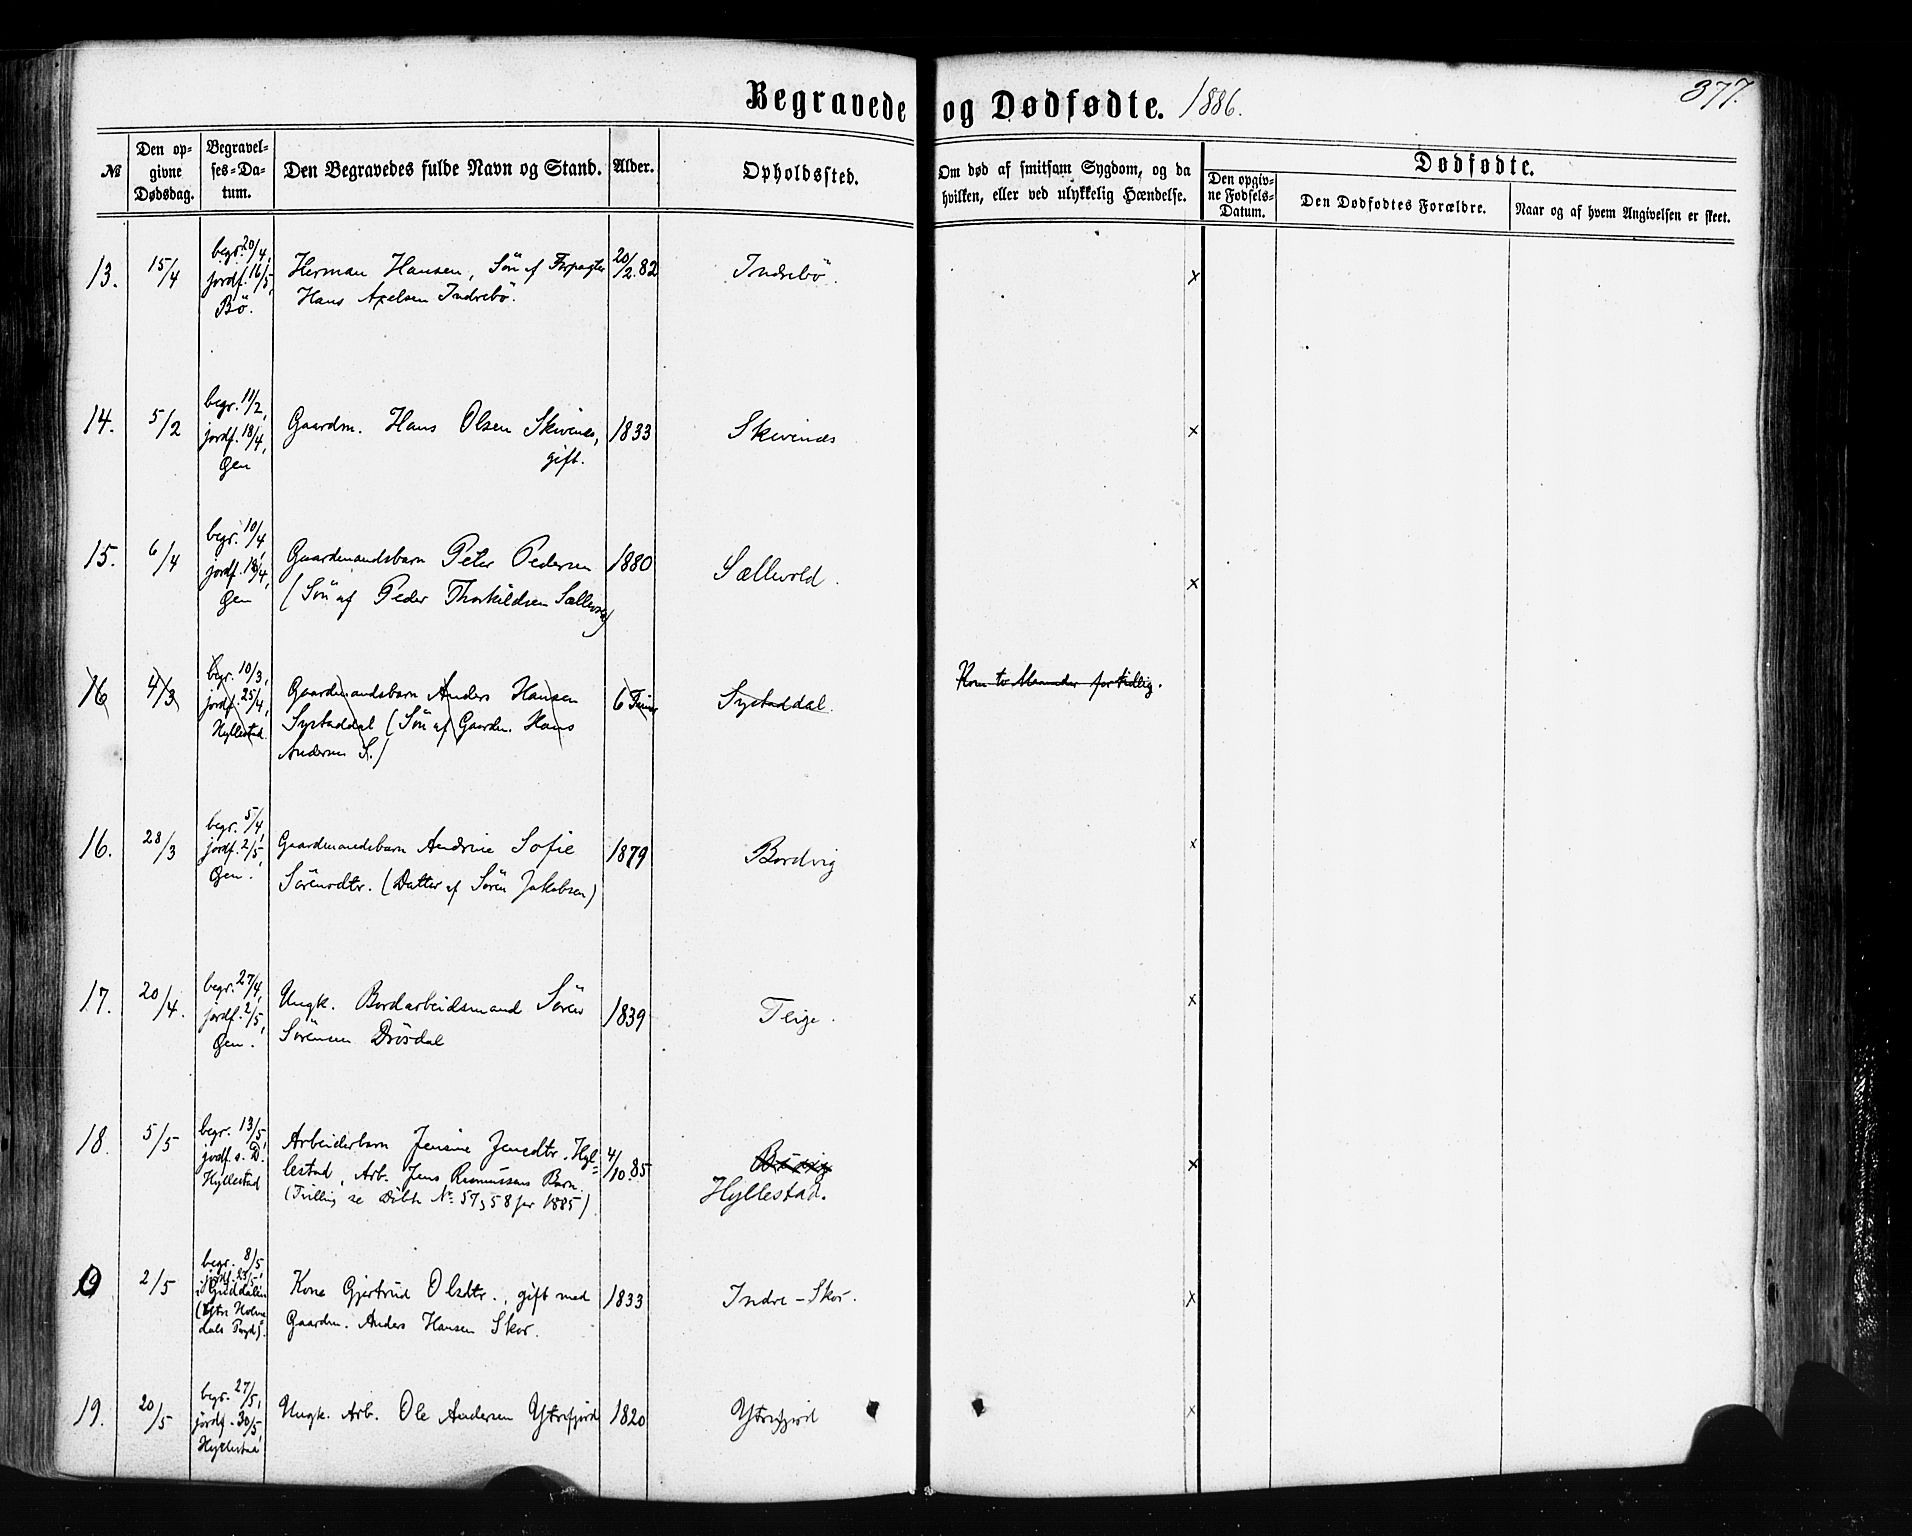 Begravede og Dødfødte. 1886. 377.
№
Den op-
givne
Dødsdag.
Begravel-
ses-Da-
tum.
Den Begravedes fulde Navn og Stand.
Alder.
Opholdssted.
Om død af smitsom Sygdom, og da
hvilken, eller ved ulykkelig Hændelse.
Dødfødte.
Den opgiv-
ne Fødsels-
Datum.
Den Dødfødtes Forældre.
Naar og af hvem Angivelsen er skeet.
13.
15/4
begr. 20/4,
jordf. 16/5,
Bö.
Herman Hansen, Sön af Forpagter
Hans Axelsen Indrebö.
20/2.82
Indrebö.
x
14.
5/2
begr. 11/2,
jordf. 18/4,
Öen
Gaardm. Hans Olsen Skivenes,
gift.
1833
Skivenæs
x
15.
6/4
begr. 10/4,
jordf. 18/4,
Öen
Gaardmandsbarn Peter Pedersen
(Sön af Peder Thorkildsen Sællevold)
1880
Sællevold.
x
16
4/3
begr. 10/3,
jordf. 25/4,
Hyllestad.
Gaardmandsbarn Anders Hansen
Systaddal (Sön af Gaardm. Hans
Andersen S.)
6 Timer
Systaddal.
Kom to Maaneder for tidlig.
16.
28/3
begr. 5/4,
jordf. 2/5,
Öen.
Gaardmandsbarn Andrine Sofie
Sörensdtr. (Datter af Sören Jakobsen)
1879
Bordvig
x
17.
20/4.
begr. 27/4,
jordf. 2/5,
Öen.
Ungk. Bordarbeidsmand Sören
Sörensen Drösdal
1839
Teige.
x
18.
5/5
begr. 13/5,
jordf. s. D.
Hyllestad
Arbeiderbarn Jensine Jensdtr. Hyl-
lestad, Arb. Jens Rasmussens Barn.
(Tvilling, se Döbte No 57 & 58 for 1885)
4/10.85
Hyllestad.
x
19
2/5
begr. 8/5,
jordf. 23/5,
Guddalen
(Ytre Holme
dals Prgld).
Kone Gjertrud Olsdtr., gift med
Gaardm. Anders Hansen Skor.
1833
Indre-Skor.
x
19.
20/5
begr. 27/5,
jordf. 30/5,
Hyllestad
Ungk. Arb. Ole Andersen Ytrefjord
1820
Ytrefjord
x